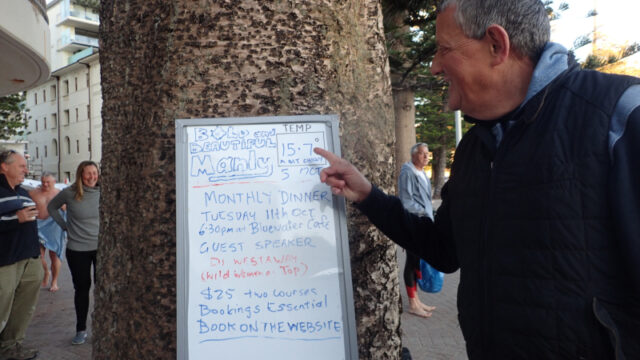 BOLD and TEMP
BEAUTIFUL 15.7°
Manly
MONTHLY DINNER
TUESDAY 11th OCT
6:30pm at Bluewater Café
GUEST SPEAKER
Di WESTAWAY
(Wild Women on Top)
$25 two courses
Bookings Essential
BOOK ON THE WEBSITE